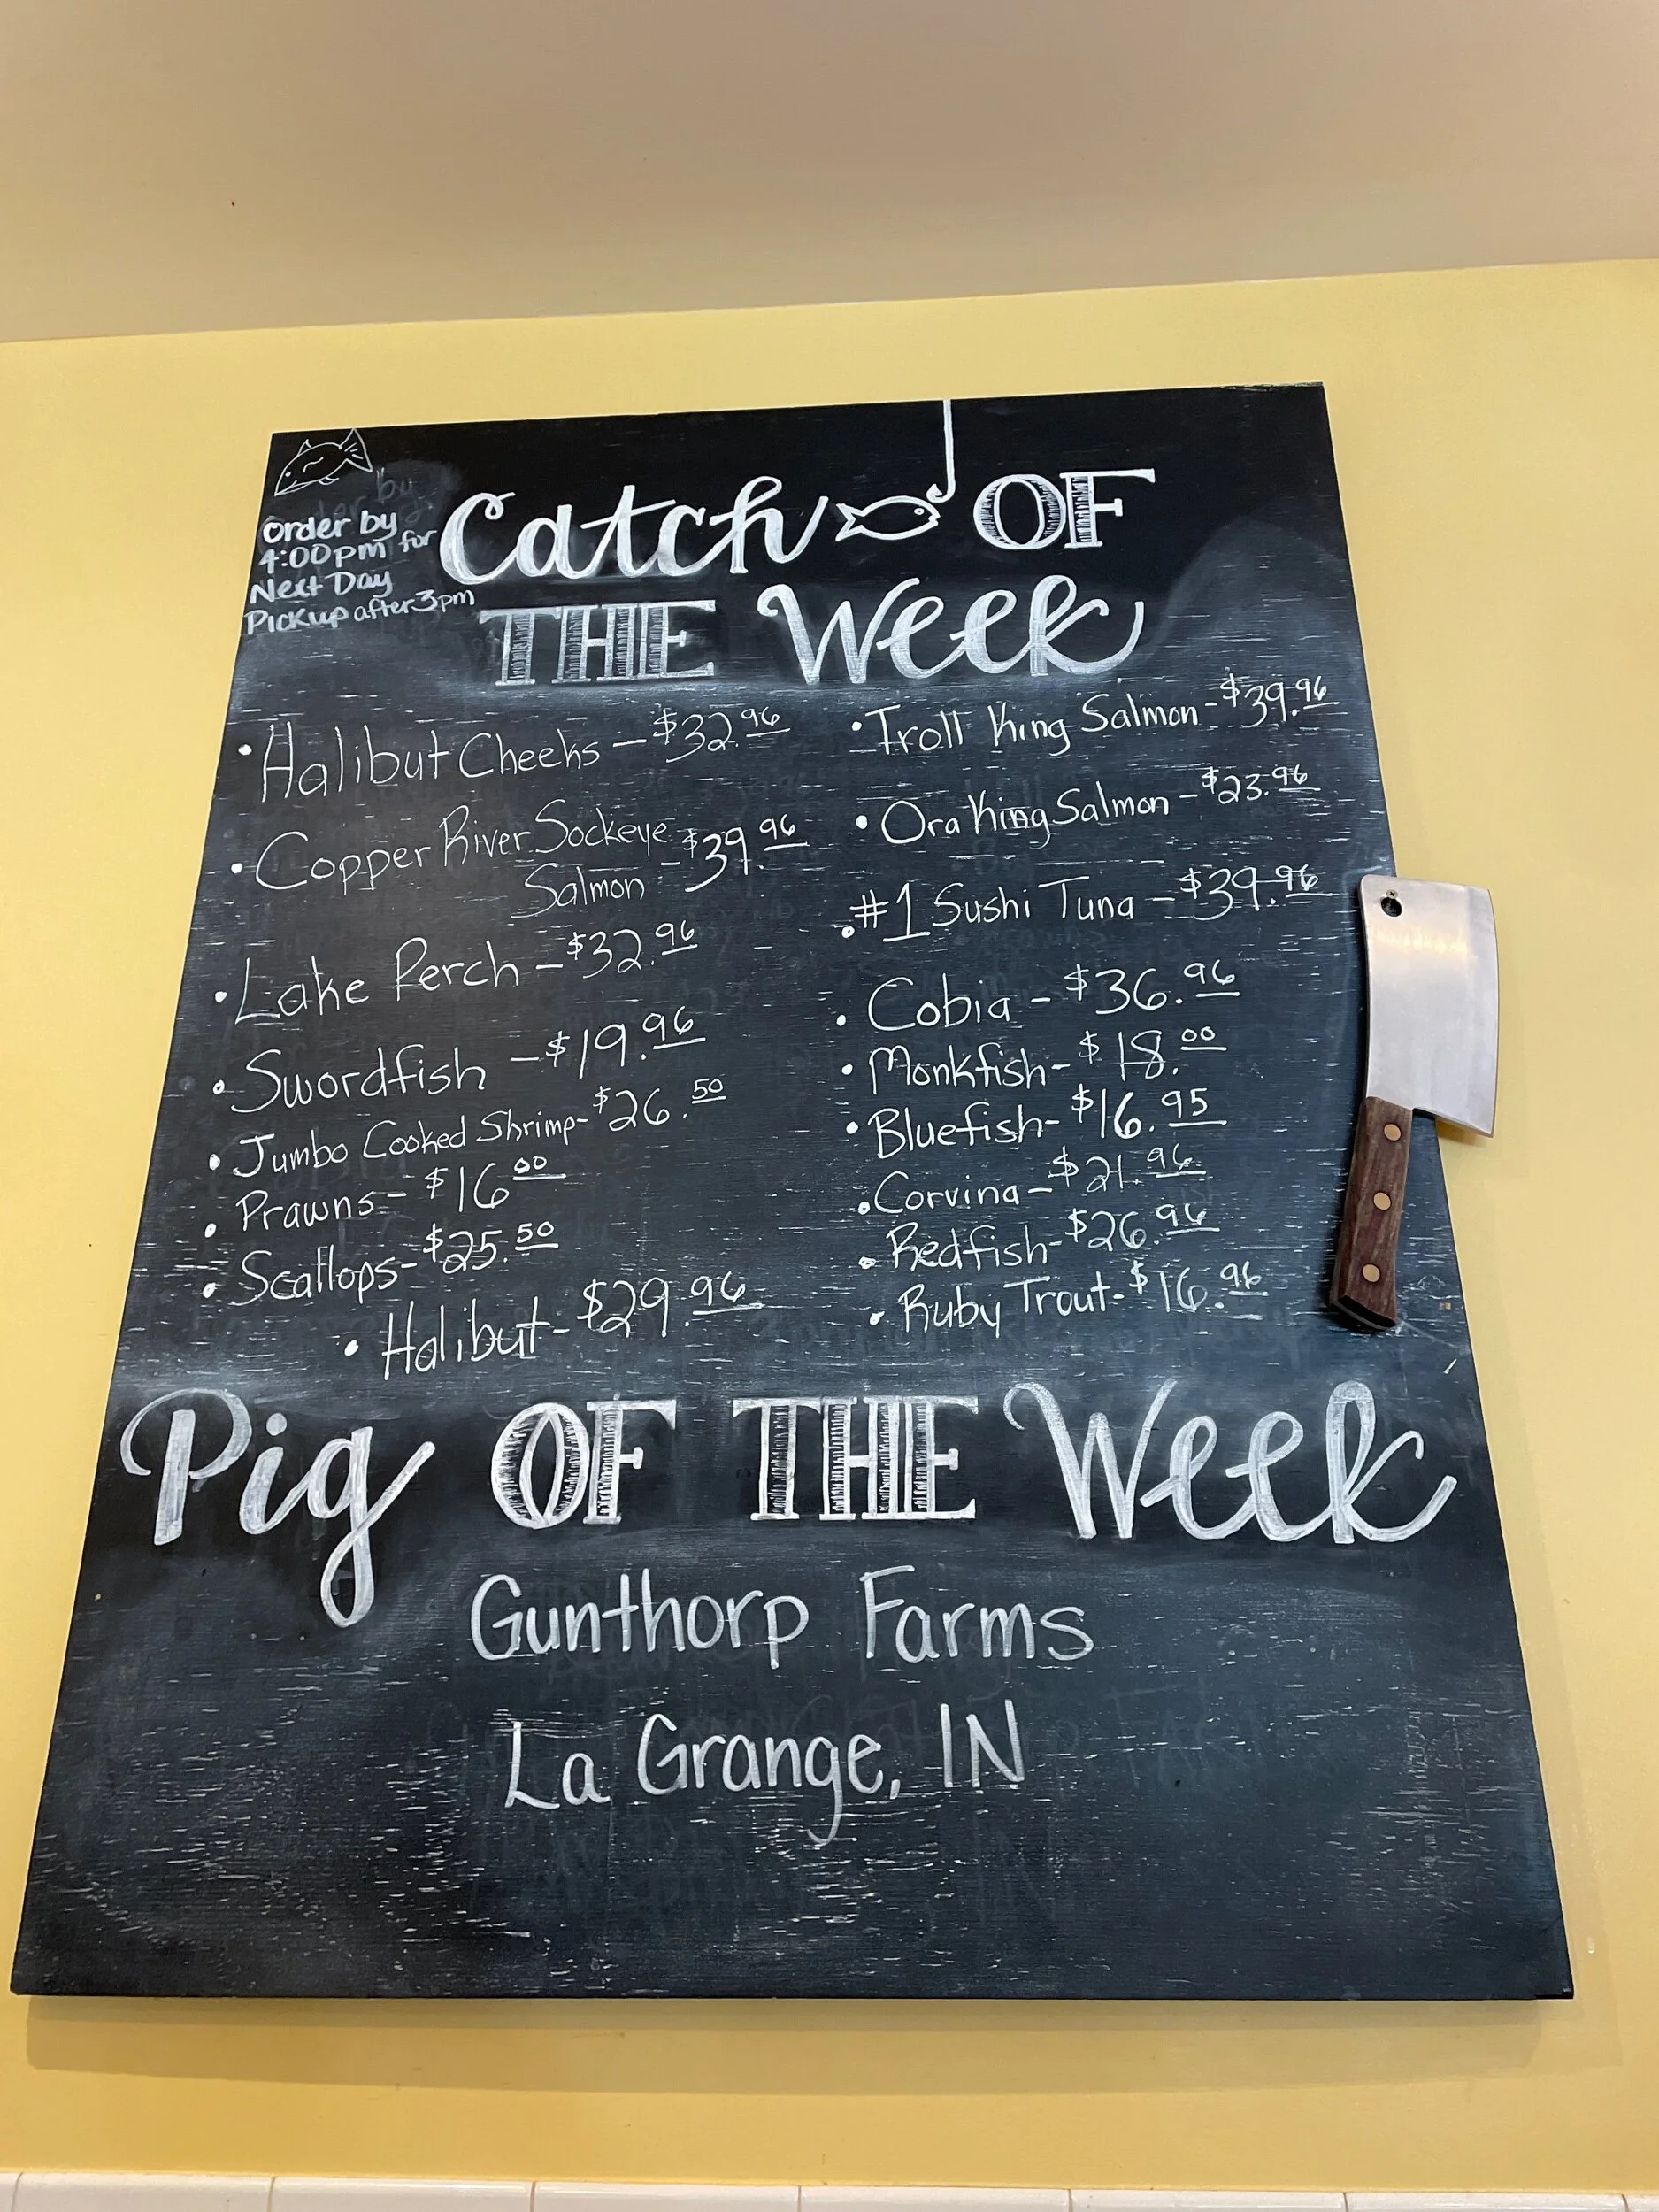 Order by
4:00pm for
Next Day
Pickup after 3pm
Catch OF
THE Week
• Halibut Cheeks – $32.96
• Copper River Sockeye
Salmon – $39.96
• Lake Perch – $32.96
• Swordfish – $19.96
• Jumbo Cooked Shrimp - $26.50
• Prawns - $16 00
• Scallops - $25.50
• Halibut - $29.96
• Troll King Salmon - $39.96
• Ora King Salmon - $23.96
• #1 Sushi Tuna - $39.96
• Cobia - $36.96
• Monkfish - $18.00
• Bluefish - $16.95
• Corvina - $21.96
• Redfish - $26.96
• Ruby Trout - $16.96
Pig OF THE Week
Gunthorp Farms
La Grange, IN